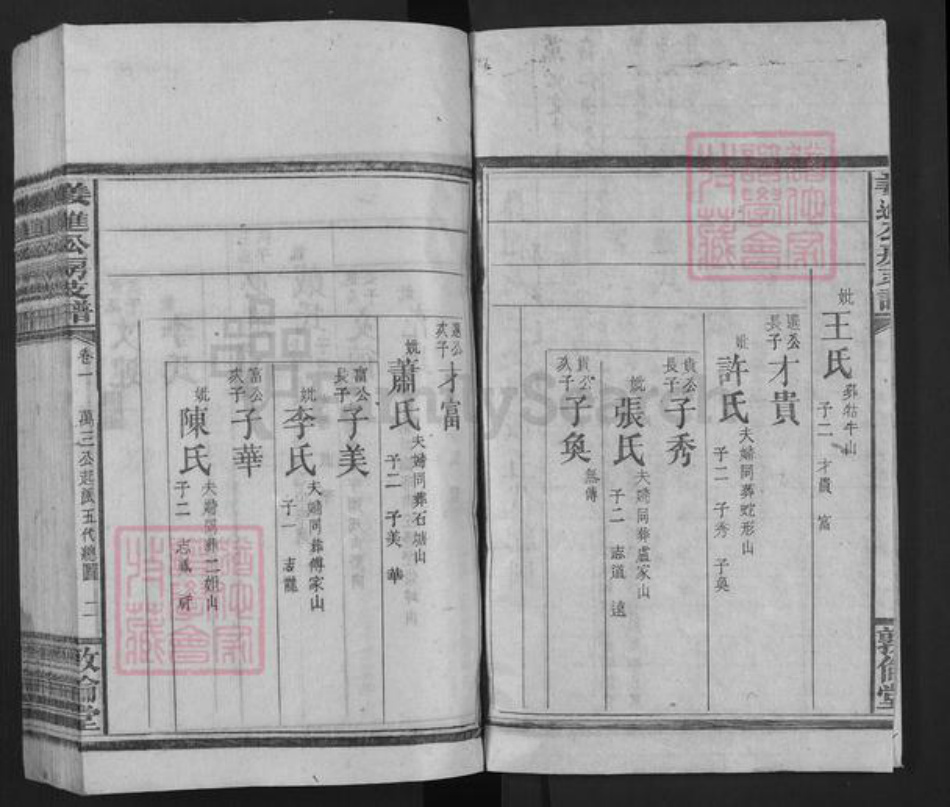 妣王氏 葬牯牛山
子二 才貴 富
進公長子 才貴
妣許氏 夫婦同葬蛇形山
子二 子秀 子奐
貴公長子 子秀
妣張氏 夫婦同葬盧家山
子二 志道 遠
貴公次子 子奐 無傳
進公次子 才富
妣蕭氏 夫婦同葬石塘山
子二 子美 華
富公長子 子美
妣李氏 夫婦同葬傅家山
子一 志龍
富公次子 子華
妣陳氏 夫婦同葬二姐山
子二
進公房支譜
卷一
萬三公起派五代總圖
敦倫堂
FamilySearch